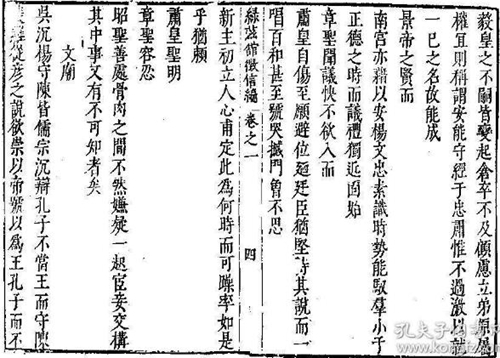 殺皇之不關皆變起倉卒不及顧慮立弟原屬
權宜則稱謂安能守經于忠肅惟不過激以就
一已之名故能成
景帝之賢而
南宮亦藉以安楊文忠素識時勢能馭羣小于
正德之時而議禮獨迕固始
章聖聞議快不欲入而
肅皇自傷至願避位廼廷臣猶堅持其說而一
唱百和甚至號哭撼門曾不思
綠菭館徵信編 卷之一 四
新主初立人心甫定此為何時而可噪率如是
乎猶賴
肅皇聖明
章聖容忍
昭聖善處骨肉之間不然嫌疑一起宦妾交構
其中事又有不可知者矣
文廟
吳沉楊守陳皆儒宗沉辯孔子不當王而守陳
從彥之說欲崇以帝號以為王孔子而不
孔夫子旧书网